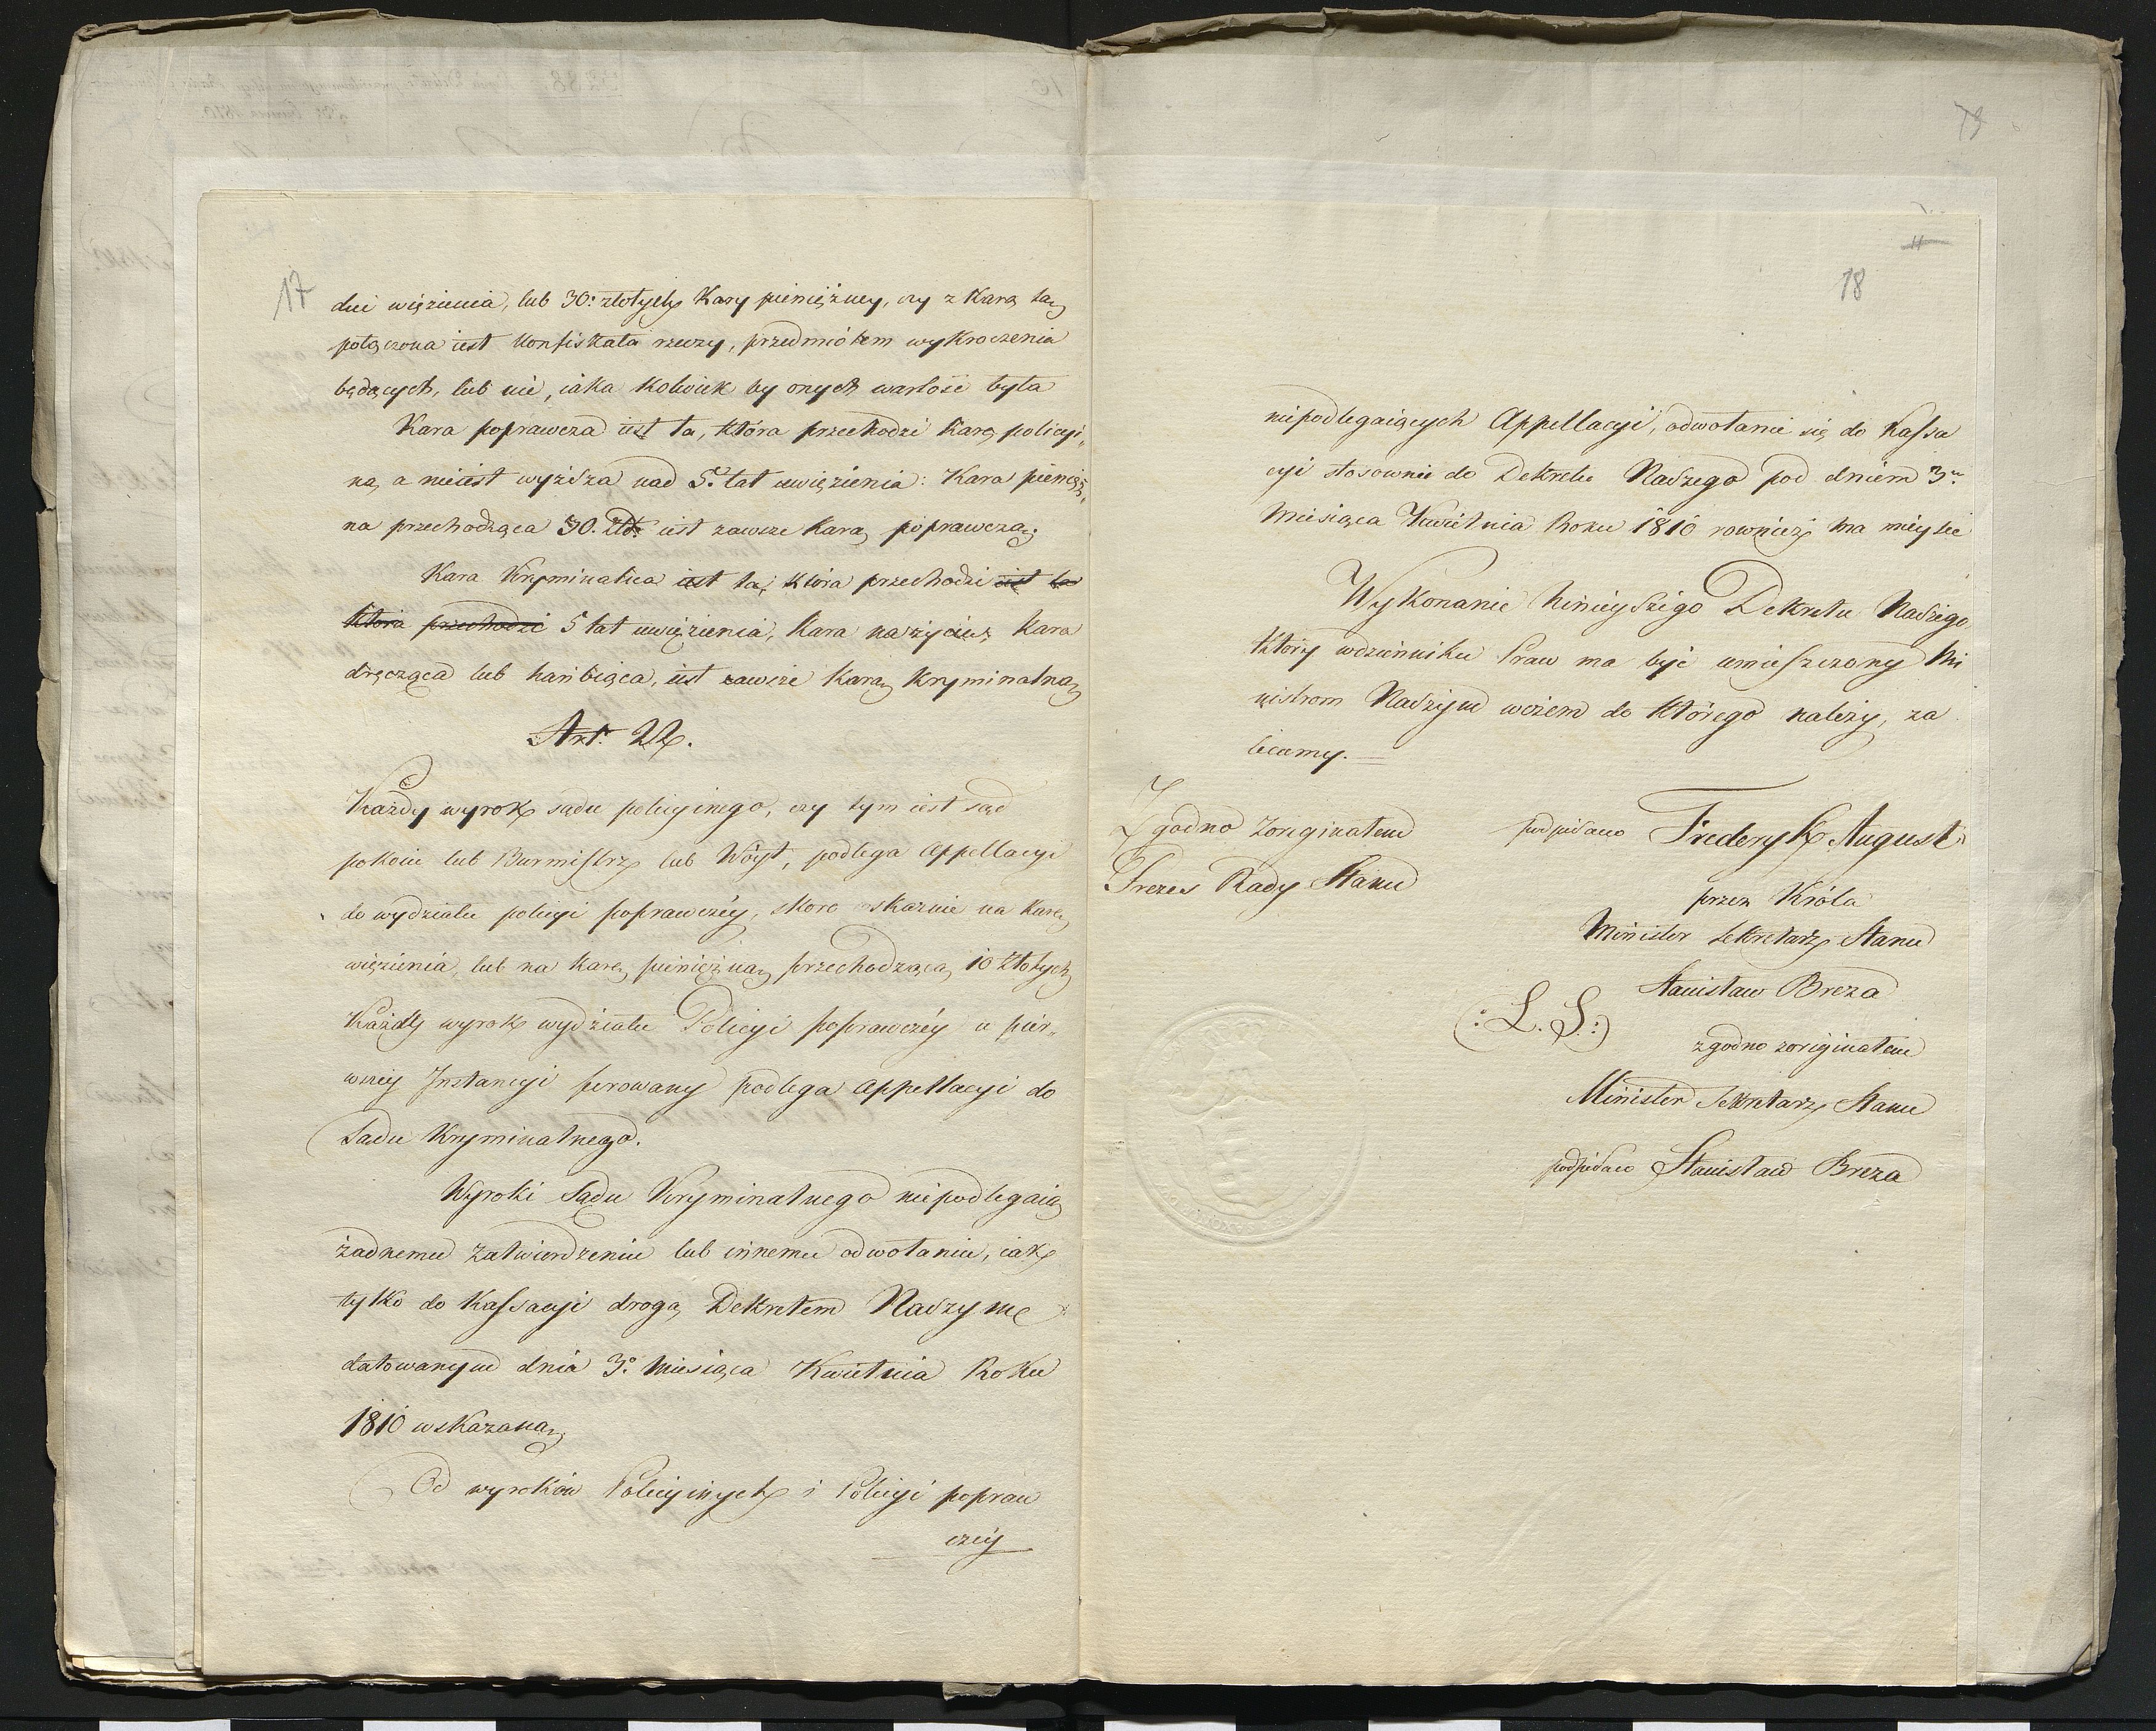 17
dni więzienia, lub 30: złotych Kary pieniężney, czy z Karą tą
połączona iest konfiskata rzeczy, przedmiotem wykroczenia
będących, lub nie, iaka kolwiek by onych wartość była
Kara poprawcza iest ta, która przechodzi karę policyi„
ną, a nieiest wyższa nad 5. lat uwięzienia: Kara pienięż„
na przechodząca 30. Złt. iest zawsze karą poprawczą.
Kara Kryminalna iest ta, która przechodzi iest ta
która przechodzi 5 lat uwięzienia, kara na życiu, kara
dręcząca lub hańbiąca, iest zawsze karą kryminalną
Art. 22.
Każdy wyrok sądu policyinego, czy tym iest sąd
pokoiu lub Burmistrz lub Wóyt, podlega Appellacyi
do wydziału policyi poprawczéy, skoro skazuie na karę
więzienia, lub na karę pieniężną przechodzącą 10 złotych
Każdy wyrok wydziału Policyi poprawczéy w pier„
wszey Instancyi ferowany podlega Appellacyi do
Sądu Kryminalnego.
Wyroki Sądu Kryminalnego niepodlegaią
żadnemu zatwierdzeniu lub innemu odwołaniu, iak
tylko do Kassacyi drogą Dekretem Naszym
datowanym dnia 3. Miesiąca Kwietnia Roku
1810 wskazaną
Od wyroków Policyinych i Policyi popraw
czéy
79
11
18
niepodlegaiących Appellacyi, odwołanie się do Kassa
cyi stosownie do Dekretu Naszego pod dniem 3.
Miesiąca Kwietnia Roku 1810 również ma mieysce
Wykonanie ninieyszego Dekretu Naszego
który wdzienniku Praw ma być umieszczony Mi
nistrom Naszym wczem do którego należy, za
lecamy.
Zgodno zoryginałem
Prezes Rady Stanu
podpisano Fryderyk August
przez Króla
Minister Sekretarz Stanu
Stanisław Breza
(: L. S. :)
zgodno zoryginałem
Minister Sekretarz Stanu
podpisano Stanisław Breza